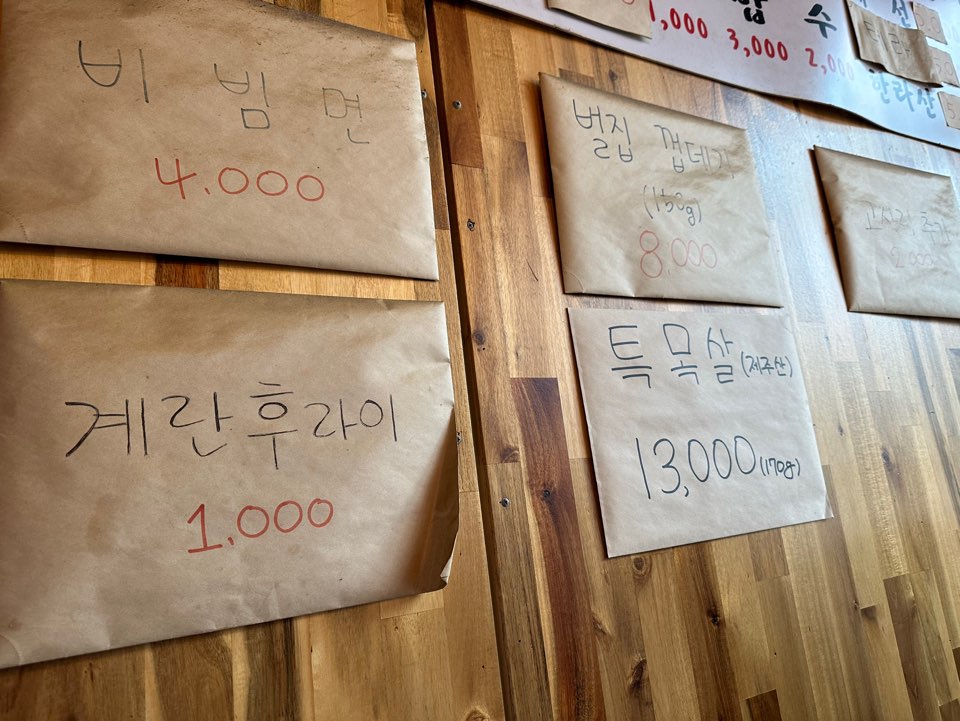 비 빔 면
4.000
계란후라이
1.000
벌집 껍데기
(150g)
8.000
특 목 살 (제주산)
13,000 (170g)
고사리 추가
2.000
수
1,000 3,000 2,000
한라산